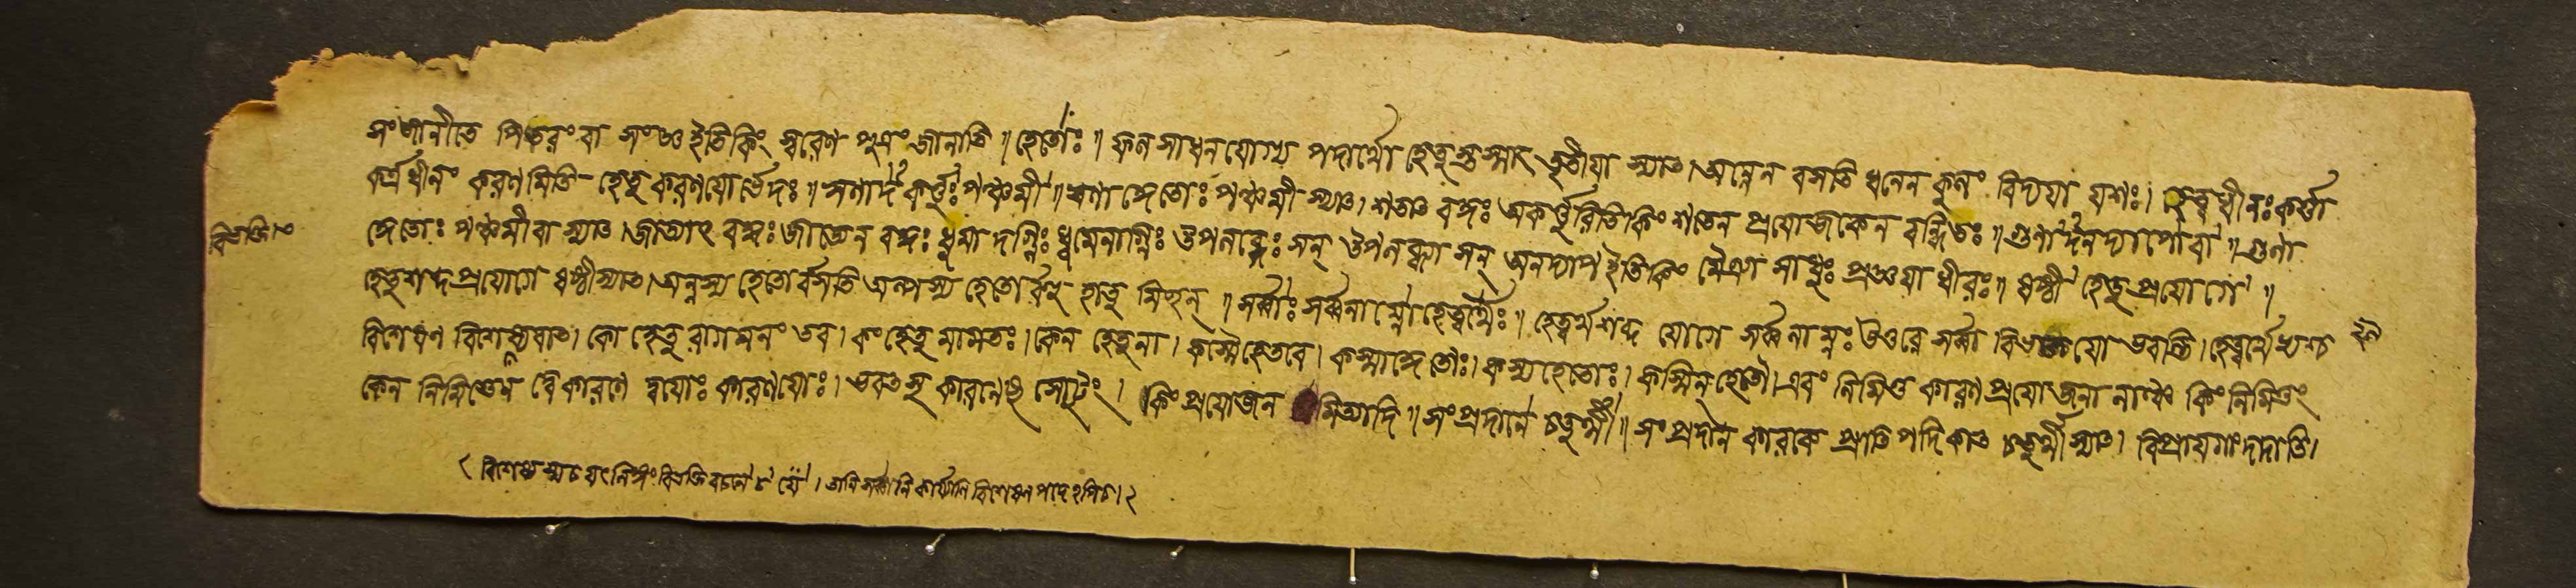 সংজানীতে পিতরং বা সংজ্ঞ ইতি কিং স্বরেণ পুত্রং জানাতি ॥ হেতোঃ ॥ ফল সাধনযোগ্য পদার্থো হেতুস্তস্মাৎ তৃতীয়া স্যাৎ। অন্নেন বসতি ধনেন কুলং বিদ্যয়া যশঃ। হেত্বধীনঃ কর্ত্তা
কর্ত্রধীনং করণমিতি হেতু করণযোর্ভেদঃ ॥ ঋণাদকর্ত্তুঃ পঞ্চমী ॥ ঋণাদ্ধেতোঃ পঞ্চমী স্যাৎ। শতাৎ বদ্ধঃ অকর্ত্তুরিতি কিং শতেন প্রযোজকেন বন্ধিতঃ ॥ গুণাদনদাপোবা ॥ গুণা
দ্ধেতোঃ পঞ্চমী বা স্যাৎ। জাড্যাৎ বদ্ধঃ জাড্যেন বদ্ধঃ ধূমাদগ্নিঃ ধূমেনাগ্নিঃ উপলব্ধেঃ সন্ উপলব্ধ্যা সন্ অনদাপ ইতি কিং মৈত্র্যা সাধুঃ প্রজ্ঞয়া ধীরঃ ॥ ষষ্ঠী হেতু প্রয়োগে ॥
হেতুশব্দপ্রয়োগে ষষ্ঠী স্যাৎ। অন্নস্য হেতোর্বসতি অল্পস্য হেতোর্বহু হাতু মিচ্ছন্ ॥ সর্ব্বাঃ সর্ব্বনাম্নো হেত্বর্থৈঃ ॥ হেত্বর্থশব্দ যোগে সর্ব্বনাম্নঃ উত্তরে সর্ব্বা বিভক্তযো ভবন্তি। হেত্বর্থেষ্বপ্য চ
বিশেষণ বিশেষ্যত্বাৎ। কো হেতু রাগমনং তব। কং হেতু মাগতঃ। কেন হেতুনা। কস্মৈ হেতবে। কস্মাদ্ধেতোঃ। কস্য হেতোঃ। কস্মিন্ হেতৌ। এবং নিমিত্ত কারণ প্রযোজনা নাঞ্চ কিং নিমিত্তং
কেন নিমিত্তেন দ্বে কারণে দ্বযোঃ কারণযোঃ। ভবৎসু কারণেষু সোঢুং। কিং প্রযোজন মিত্যাদি ॥ সংপ্রদানে চতুর্থী ॥ সংপ্রদান কারকে প্রাতিপদিকাৎ চতুর্থী স্যাৎ। বিপ্রায় গাং দদাতি।
বিভক্তিঃ
২৯
বিশেষ্যস্য চ যৎ লিঙ্গং বিভক্তি বচনে চ যে। তানি সর্ব্বানি কার্য্যাণি বিশেষণ পদেঽপি চ। ২